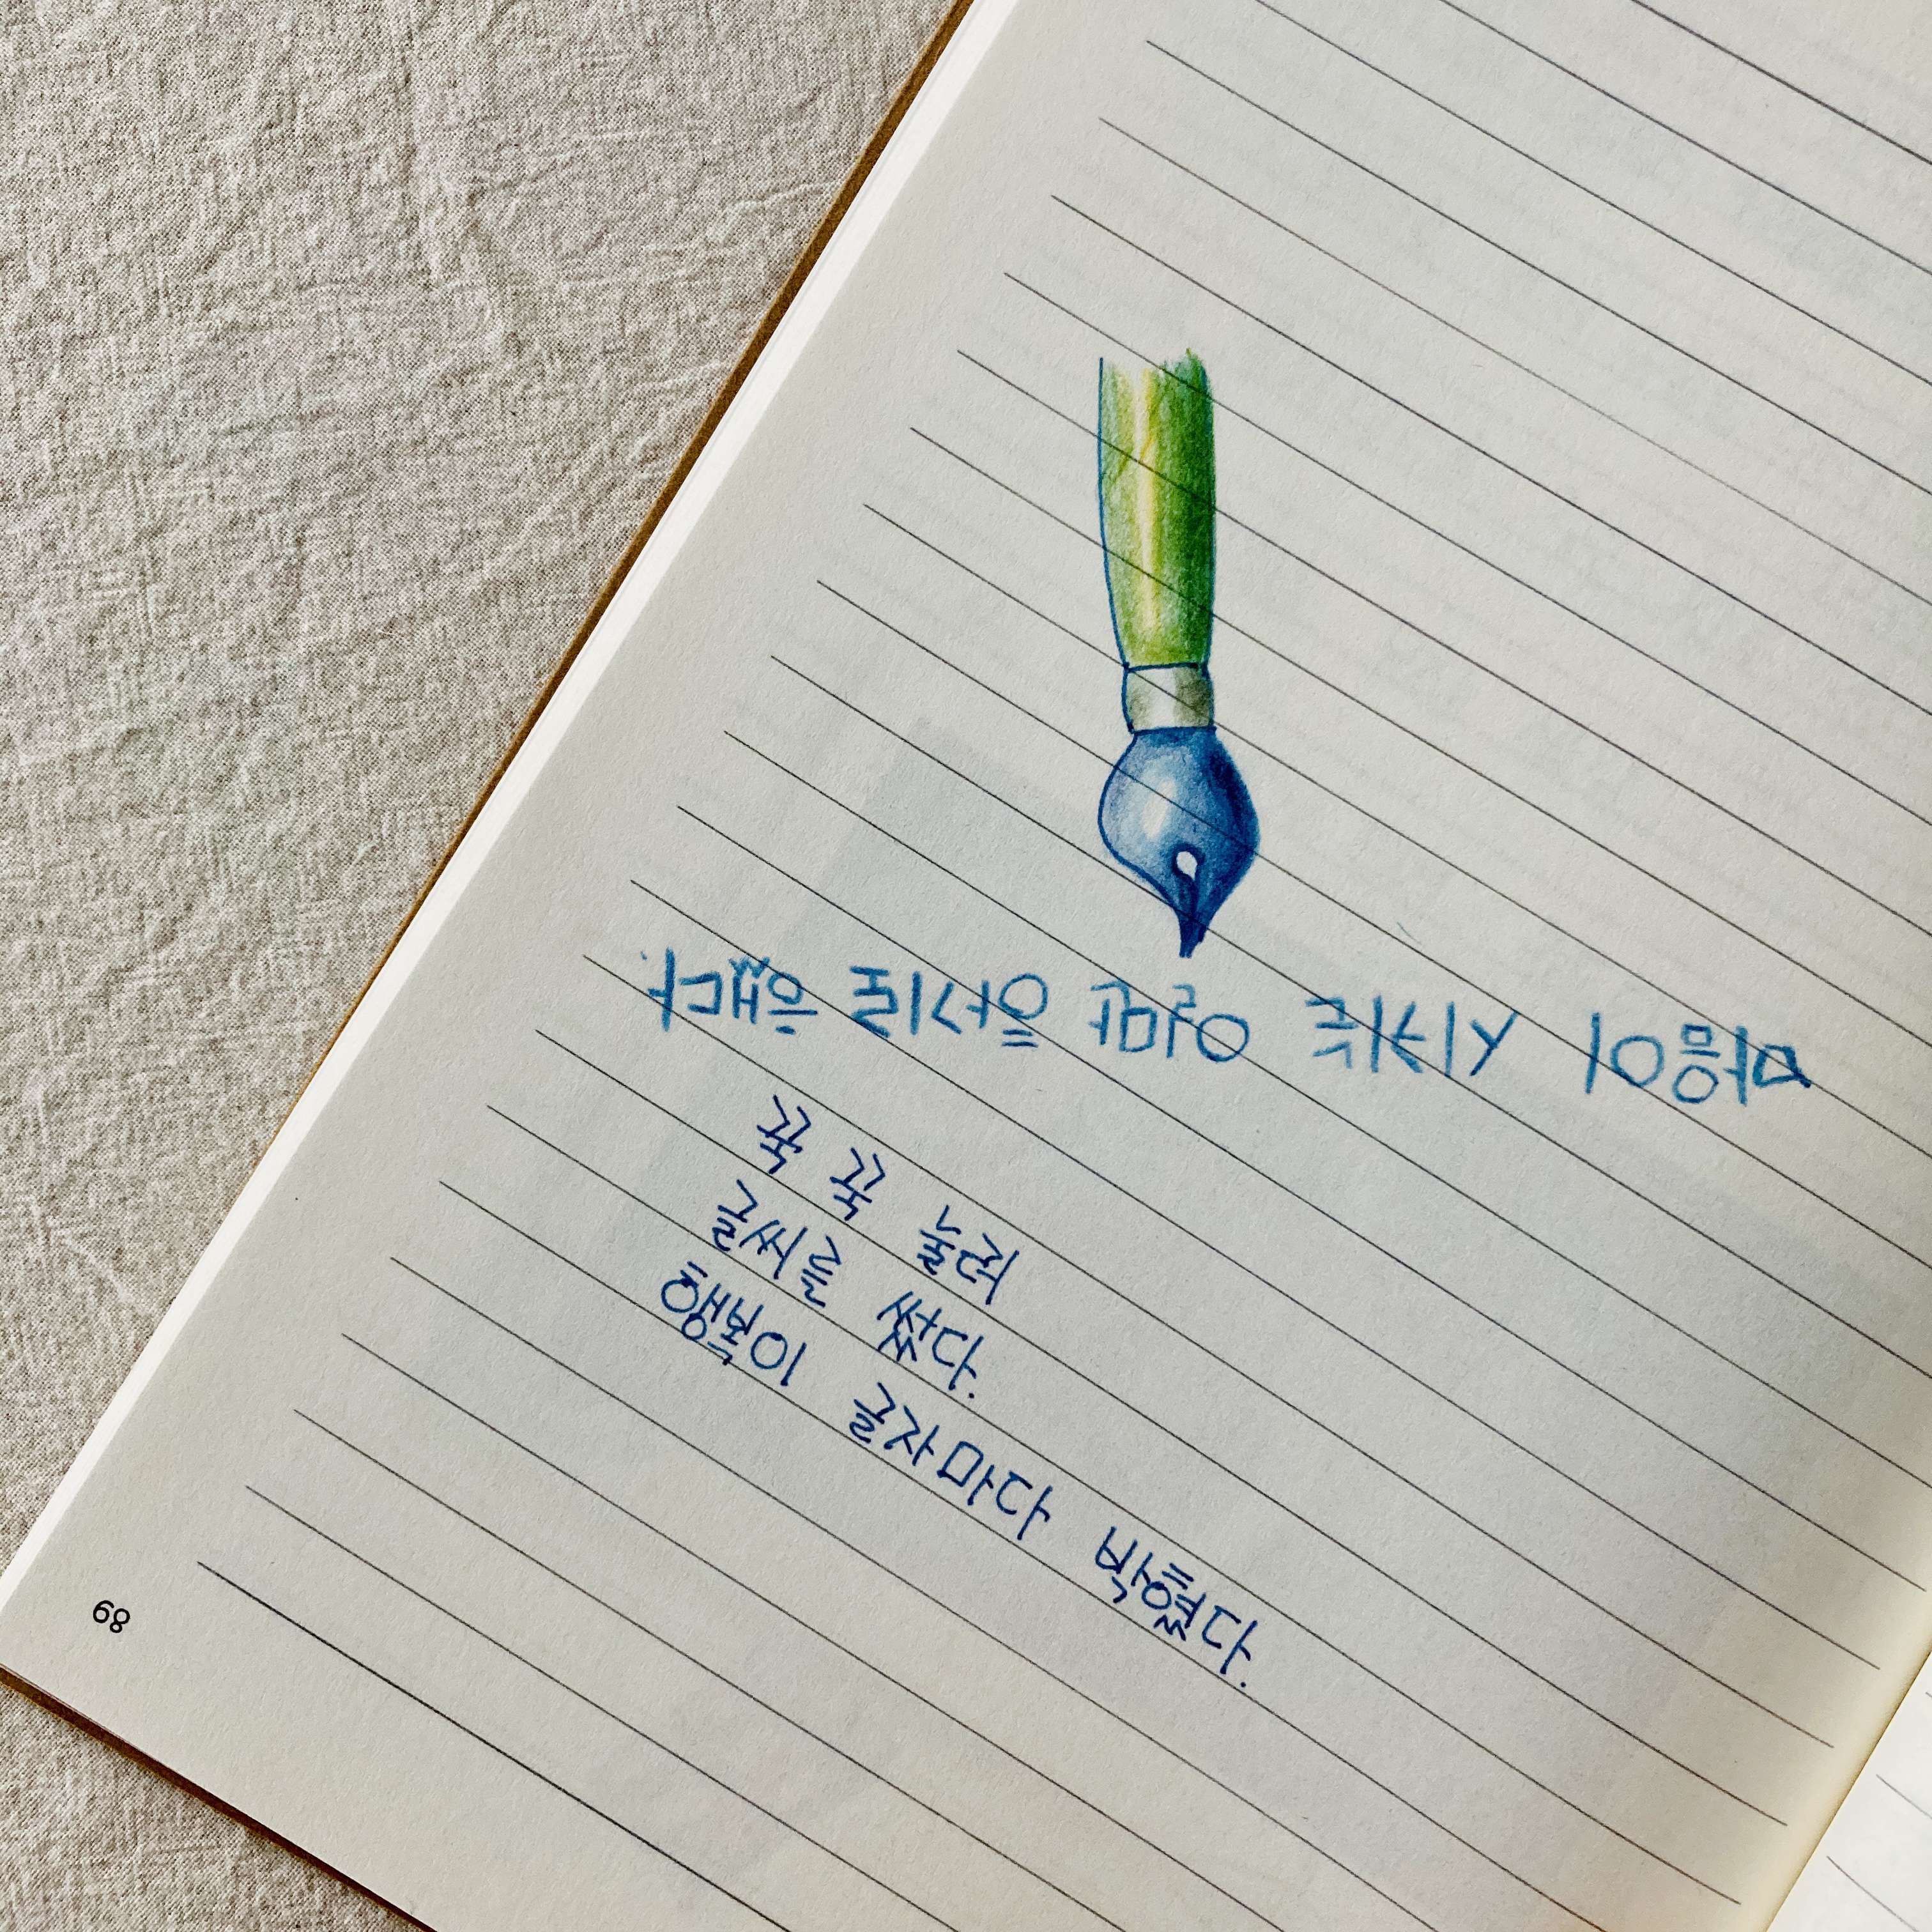 마음이 시키는 일만 하기로 했다
꾹 꾹 눌러
글씨를 썼다.
행복이 글자마다 박혔다.
68